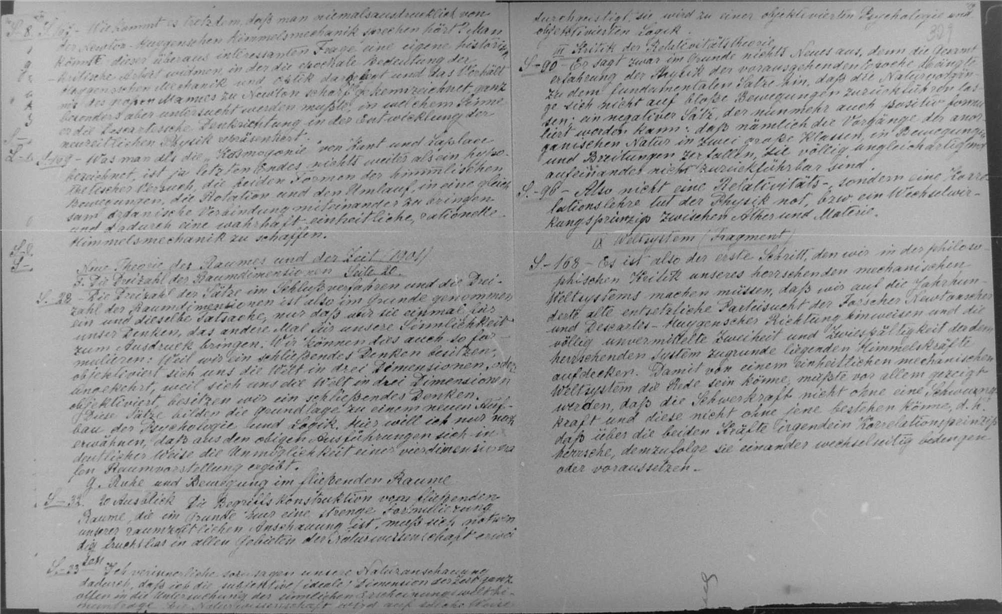 Wie kommt es trotzdem, daß man niemals ausdrücklich von
der Kepler-Huygenschen Himmelsmechanik sprechen hört? Man
könnte dieser überaus interessanten Frage eine eigene historisch
kritische Arbeit widmen in der die epochale Bedeutung der
Huygenschen Mechanik und Optik dargetan und das Verhält-
nis des großen Mannes zu Newton scharf gekennzeichnet, ganz
besonders aber untersucht werden müßte, in welchem Sinne
er die Descartesche Denkrichtung in der Entwicklung der
neuzeitlichen Physik repräsentiert.
Was man als die "Kosmogonie" von Kant und Laplace
bezeichnet, ist ja letzten Endes nichts weiter als ein hypo-
thetischer Versuch, die beiden Formen der himmlischen
Bewegungen, die Rotation und den Umlauf, in eine gleich-
sam organische Verbindung miteinander zu bringen
und dadurch eine wahrhaft einheitliche, rationelle
Himmelsmechanik zu schaffen.
Neue Theorie des Raumes und der Zeit (1901)
F. Die Dreizahl der Raumdimensionen Seite 28.
S-28 - Die Dreizahl der Sätze im Schlußverfahren und die Drei-
zahl der Raumdimensionen ist also im Grunde genommen
ein und dieselbe Tatsache, nur daß wir sie einmal für
unser Denken, das andere Mal für unsere Sinnlichkeit
zum Ausdruck bringen. Wir können dies auch so for-
mulieren: Weil wir ein schließendes Denken besitzen,
objektiviert sich uns die Welt in drei Dimensionen, oder
umgekehrt, weil sich uns die Welt in drei Dimensionen
objektiviert, besitzen wir ein schließendes Denken.
Diese Sätze bilden die Grundlage zu einem neuen Auf-
bau der Psychologie und Logik. Hier will ich nur noch
erwähnen, daß aus den obigen Ausführungen sich in
deutlicher Weise die Unmöglichkeit einer vierdimensiona-
len Raumvorstellung ergibt.
G. Ruhe und Bewegung im fließenden Raume
S-32 Ausblick Die Begriffskonstruktion vom fließenden
Raume, die im Grunde nur eine strenge Formulierung
unserer raumzeitlichen Anschauung ist, muß sich notwen-
dig fruchtbar in allen Gebieten der Naturwissenschaft erwei-
sen.
S-33 Ich verinnerliche sozusagen unsere Naturanschauung
dadurch, daß ich die subjektive (ideale) Dimension der Zeit ganz
allein in die Untersuchung der sinnlichen Erscheinungswelt
Die Naturwissenschaft wird auf solche Weise
durchgeistigt, sie wird zu einer objektivierten Psychologie und
objektivierten Logik.
Kritik der Relativitätstheorie
S-90 - Es sagt zwar im Grunde nichts Neues aus, denn die Gesamt-
erfahrung der Physik der vorausgehenden Epoche drängte
zu dem fundamentalen Satze hin, daß die Naturvorgän-
ge sich nicht auf bloße Bewegungen zurückführen las-
sen; ein negativer Satz, der nunmehr auch positiv formu-
liert werden kann: daß nämlich die Vorgänge der anor-
ganischen Natur in zwei große Klassen, in Bewegungen
und Breitungen zerfallen, die völlig ungleichartig und
aufeinander nicht zurückführbar sind.
S-96 - Also nicht eine Relativitäts-, sondern eine Korre-
lationslehre tut der Physik not, bzw. ein Wechselwir-
kungsprinzip zwischen Äther und Materie.
IX Weltsystem (Fragment)
S-168 - Es ist also der erste Schritt, den wir in der philoso-
phischen Kritik unseres herrschenden mechanischen
Weltsystems machen müssen, daß wir auf die Jahrhun-
derte alte entsetzliche Parteisucht der
und Descartes-Huygenscher Richtung hinweisen und die
völlig unvermittelte Zweiheit und Zwiespältigkeit der dem
herrschenden System zugrunde liegenden Himmelskräfte
aufdecken. Damit von einem einheitlichen mechanischen
Weltsystem die Rede sein könne, müßte vor allem gezeigt
werden, daß die Schwerkraft nicht ohne eine Schwung-
kraft und diese nicht ohne jene bestehen könne, d.h.
daß über die beiden Kräfte irgendein Korrelationsprinzip
herrsche, demzufolge sie einander wechselseitig bedingen
oder voraussetzen.-